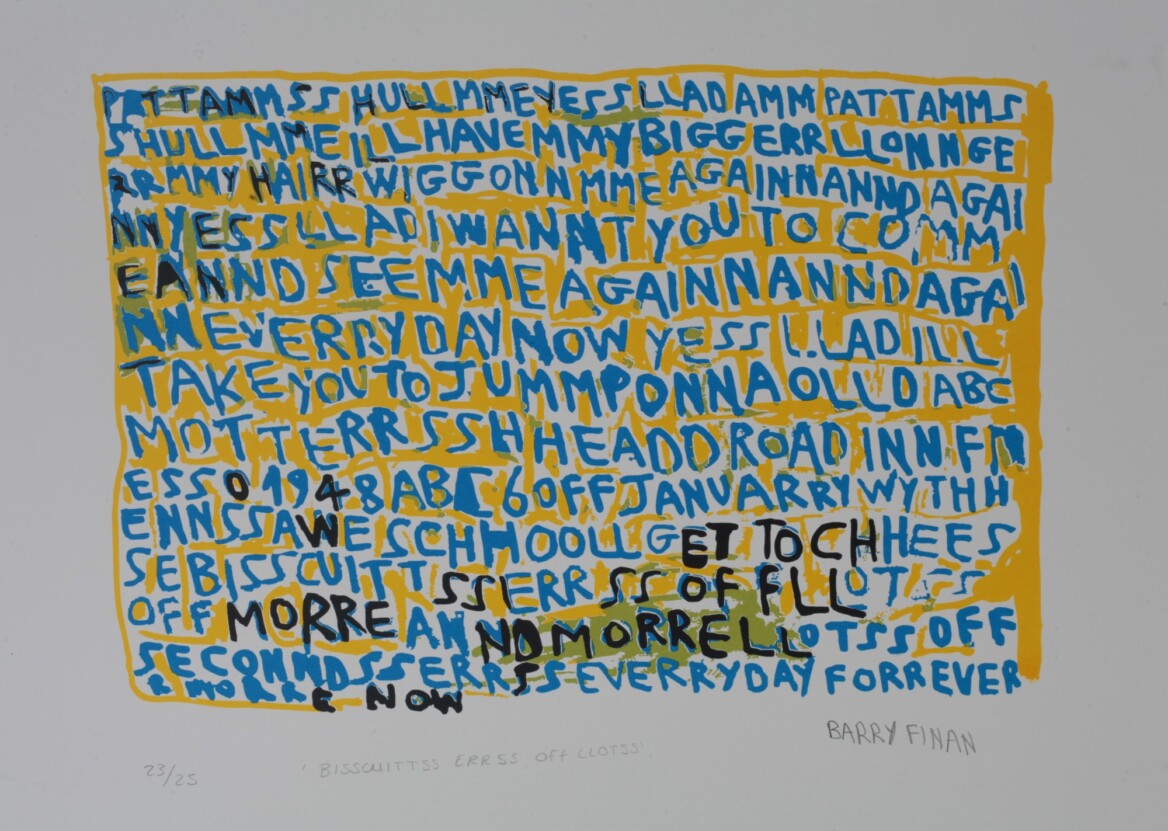 PATTAMMSS HULLMMEYESSLLADAMMPATTAMMS
SHULLMMEILLHAVEMMYBIGGERRLLONNGE
RRMMYHAIRRWIGGONNMMEAGAINNANNDAGAI
NNYESSLLADIWANNTYOUTOCOMM
EANNDSEEMMEAGAINNANNDAGAI
NNEVERRYDAYNOWYESSLLADILL
TAKEYOUTOJUMMPONNAOLLDABC
MOTTERRSSHHEADDROADINNFN
ESSO1948ABC6OFFJANUARRYWYTHH
ENNSSAWESCHHOOLLGETTOCHHEES
SEBISSCUITTSSIERRSSOFFLLOTSS
OFFMORREANNDMORRELLOTSSOFF
SECONNDSSERRSSEVERRYDAYFORREVER
RMORRENOW
BARRY FINAN
23/25 'BISSCUITTSS ERRSS OFF LLOTSS'